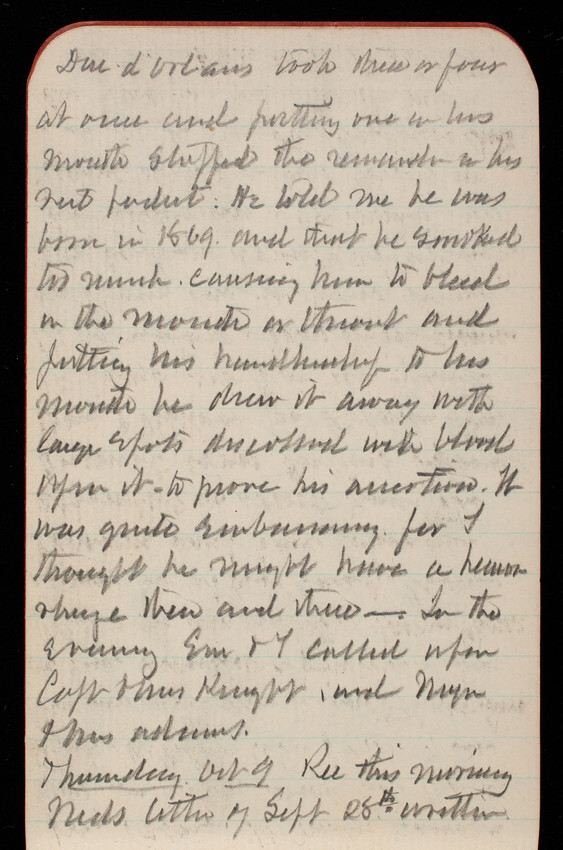 Duc d'Orleans took three or four
at once and putting one in his
mouth stuffed the remainder in his
vest pocket. He told me he was
born in 1869. and that he smoked
too much. causing him to bleed
in the mouth or throat and
putting his handkerchief to his
mouth he drew it away with
large spots discolored with blood
upon it - to prove his assertion. It
was quite embarrassing for I
thought he might have a hemor
rhage then and there —. In the
evening Em & I called upon
Capt & Mrs Knight, and Major
& Mrs Adams.
Thursday Oct 9 Rec this morning
Neds letter of Sept 28th written